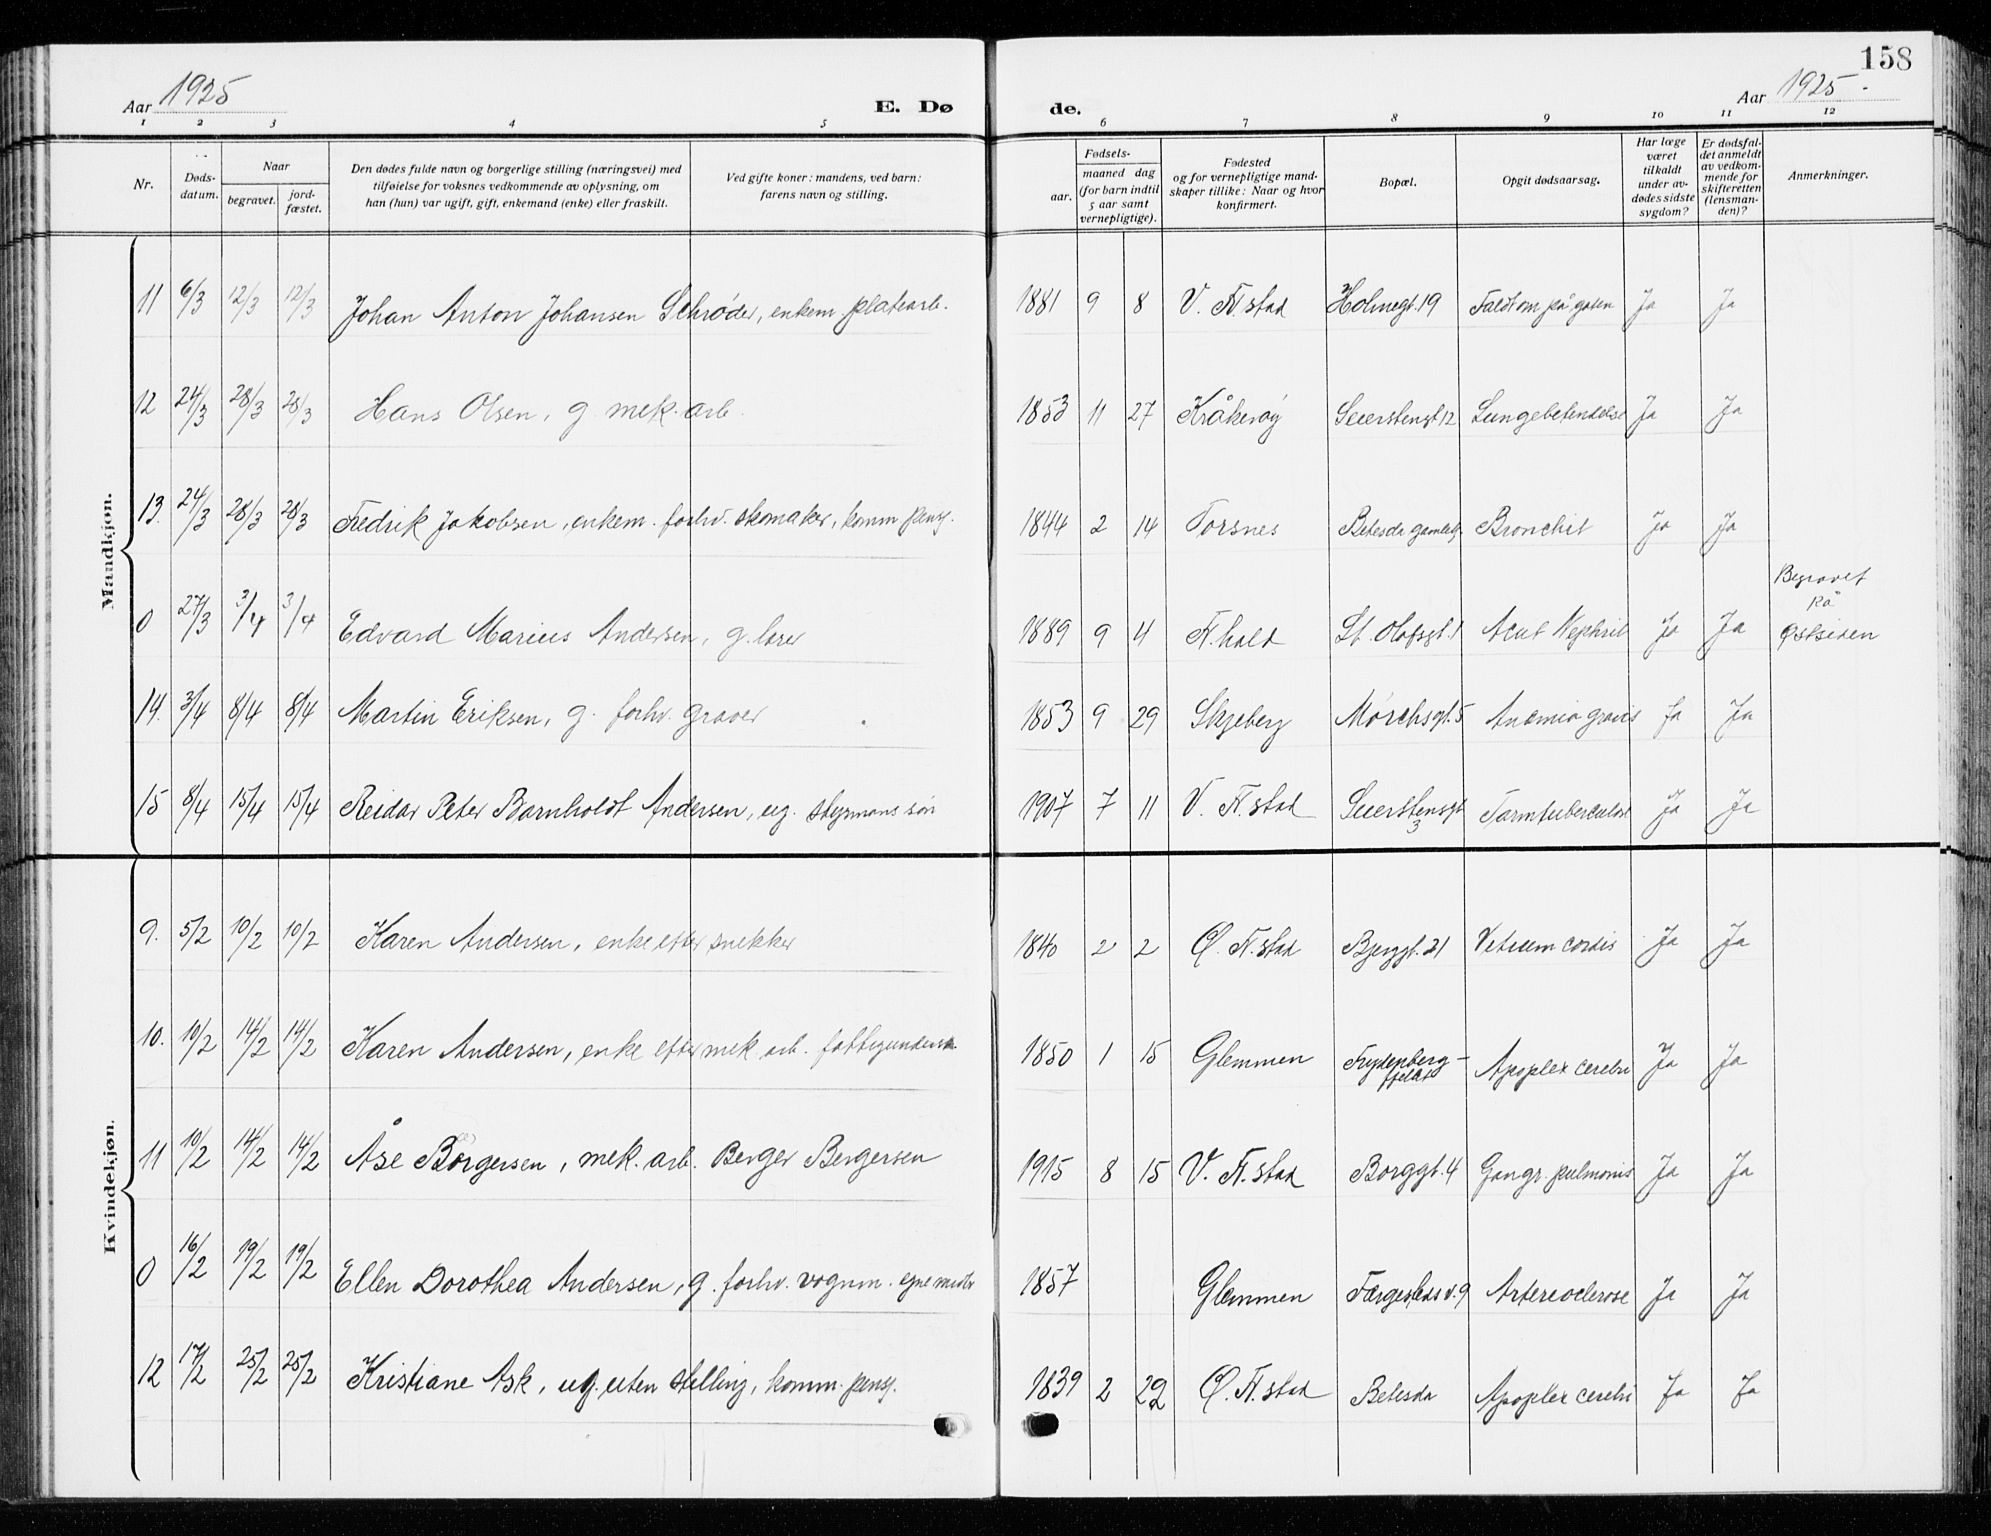 158
Aar 1925 E. Dø de. Aar 1925.
1 2 3 4 5 6 7 8 9 10 11 12
Nr. Døds-datum. Naar begravet. jord-fæstet. Den dødes fulde navn og borgerlige stilling (næringsvei) med tilføielse for voksnes vedkommende av oplysning, om han (hun) var ugift, gift, enkemand (enke) eller fraskilt. Ved gifte koner: mandens, ved barn: farens navn og stilling. Fødsels- aar. maaned dag (for barn indtil 5 aar samt vernepligtige). Fødested og for vernepligtige mand-skaper tillike: Naar og hvor konfirmert. Bopæl. Opgit dødsaarsag. Har læge været tilkaldt under av-dødes sidste sygdom? Er dødsfal-det anmeldt av vedkom-mende for skifteretten (lensman-den)? Anmerkninger.
Mandkjøn.
11 6/3 12/3 12/3 Johan Anton Johansen Schrøder, enkem. platearb. 1881 9 8 V. Fr.stad Holmegt. 19 Faldt om på gaten Ja Ja
12 24/3 28/3 28/3 Hans Olsen, g. mek. arb. 1853 11 27 Kråkerøy Seierstensgt 12 Lungebetendelse Ja Ja
13. 24/3 28/3 28/3 Fredrik Jakobsen, enkem. forhv. skomaker, komm. pensj. 1844 2 14 Torsnes Betesda gamleh. Bronchit Ja Ja
0 27/3 3/4 3/4 Edvard Marius Andersen, g. lærer 1889 9 4 Fr.hald St. Olafsgt. 1 Acut Nephrit Ja Ja Begravet på Østsiden
14. 3/4 8/4 8/4 Martin Eriksen, g. forhv. graver 1853 9 29 Skjeberg Mørchsgt. 5 Anæmia gravis Ja Ja
15 8/4 15/4 15/4 Reidar Peter Barnholdt Andersen, ug. styrmans søn 1907 7 11 V. Fr.stad Seierstensgt 3 Tarmtuberculose Ja Ja
Kvindekjøn.
9. 5/2 10/2 10/2 Karen Andersen, enke efter snekker 1840 2 2 Ø. Fr.stad Bjerggt. 21 Vitium cordis Ja Ja
10. 10/2 14/2 14/2 Karen Andersen, enke efter mek. arb. fattigunderst. 1850 1 15 Glemmen Frydenberg-fjeldet Apoplex cerebri Ja Ja
11 10/2 14/2 14/2 Åse Børgersen, mek. arb. Berger Bergersen 1915 8 15 V. Fr.stad Borggt. 4 Gangr. pulmonis Ja Ja
0 16/2 19/2 19/2 Ellen Dorothea Andersen, g. forhv. vognm. egne midler 1857 Glemmen Færgestads v. 9 Artereoclerose Ja Ja
12 17/2 25/2 25/2 Kristiane Ask, ug. uten stilling, komm. pensj. 1839 2 22 Ø. Fr.stad Betesda Apoplex cerebri Ja Ja